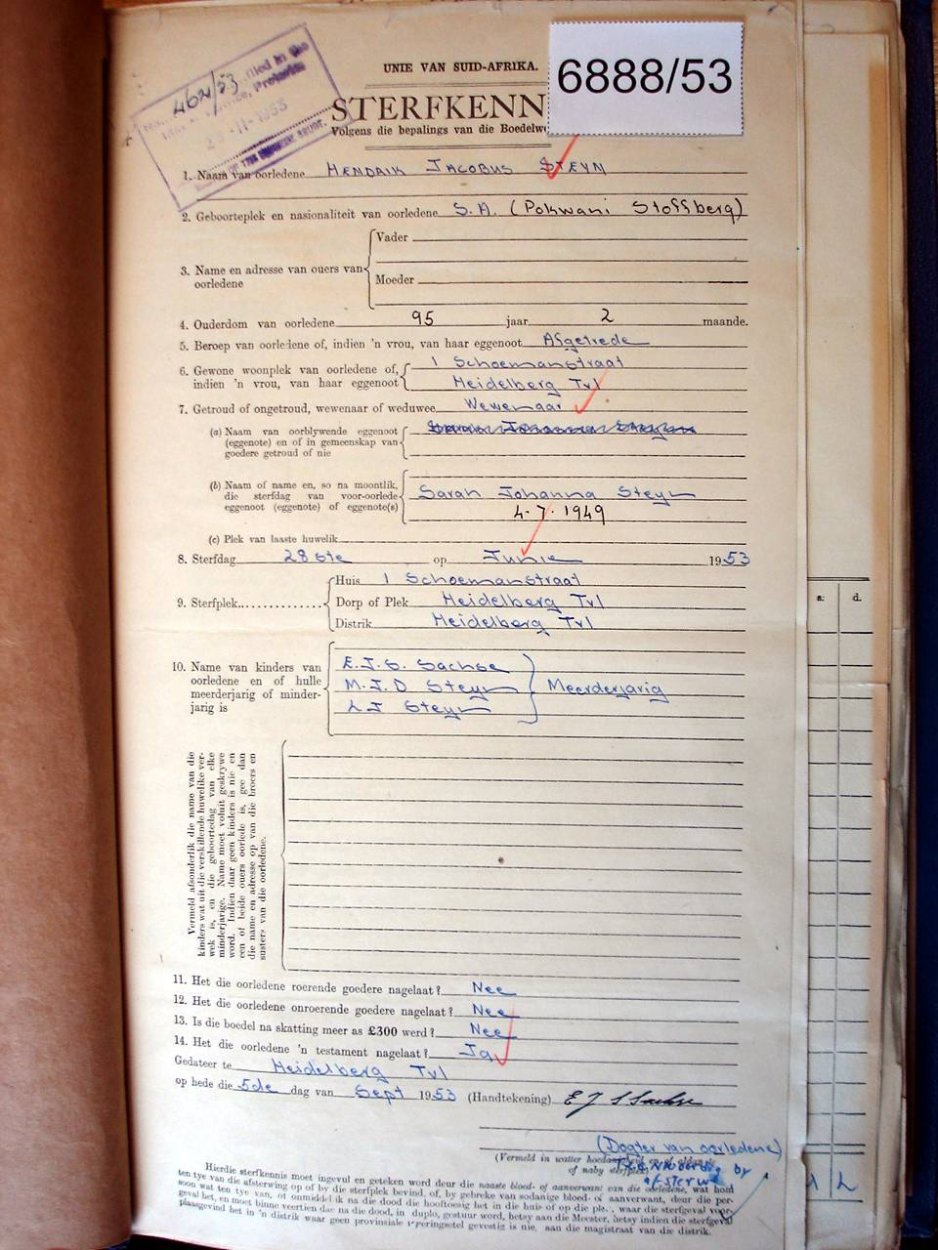 6888/53
UNIE VAN SUID-AFRIKA.
STERFKENN
Volgens die bepalings van die Boedelw
462/53
filed in the
Pretoria
1. Naam van oorledene HENDRIK JACOBUS STEYN
2. Geboorteplek en nasionaliteit van oorledene S.A. (Pokwani Stoffberg)
3. Name en adresse van ouers van oorledene
Vader
Moeder
4. Ouderdom van oorledene 95 jaar 2 maande.
5. Beroep van oorledene of, indien 'n vrou, van haar eggenoot Afgetrede
6. Gewone woonplek van oorledene of, 1 Schoemanstraat
indien 'n vrou, van haar eggenoot Heidelberg Tvl
7. Getroud of ongetroud, wewenaar of weduwee Wewenaar
(a) Naam van oorblywende eggenoot
(eggenote) en of in gemeenskap van
goedere getroud of nie
(b) Naam of name en, so na moontlik,
die sterfdag van voor-oorlede Sarah Johanna Steyn
eggenoot (eggenote) of eggenote(s) 4.7.1949
(c) Plek van laaste huwelik
8. Sterfdag 28ste op Junie 1953
9. Sterfplek
Huis 1 Schoemanstraat
Dorp of Plek Heidelberg Tvl
Distrik Heidelberg Tvl
10. Name van kinders van E.J.S. Sachse
oorledene en of hulle M.J.D Steyn Meerderjarig
meerderjarig of minder- L J Steyn
jarig is
Vermeld afsonderlik die name van die
kinders wat uit die verskillende huwelike ver-
wek is, en die geboortedag van elke
minderjarige. Name moet voluit geskrywe
word. Indien daar geen kinders is nie en
een of beide ouers oorlede is, gee dan
die name en adresse op van die broers en
susters van die oorledene.
a: d.
11. Het die oorledene roerende goedere nagelaat? Nee
12. Het die oorledene onroerende goedere nagelaat? Nee
13. Is die boedel na skatting meer as £300 werd? Nee
14. Het die oorledene 'n testament nagelaat? Ja
Gedateer te Heidelberg Tvl
op hede die 5de dag van Sept 1953 (Handtekening) E J S Sachse
(Dogter van oorledene)
(Vermeld in watter
of naby sterfplek) by
afsterwe
Hierdie sterfkennis moet ingevul en geteken word deur die naaste bloed- of aanverwant van die oorledene, wat
ten tye van die afsterwing op of by die sterfplek bevind of, by gebreke van sodanige bloed- of aanverwant, deur die per-
soon wat ten tye van, of onmiddelik na die dood die hooftoesig het in die huis of op die plek, waar die sterfgeval voor-
geval het, en moet binne veertien dae na die dood, in duplo, gestuur word, hetsy aan die Meester, hetsy indien die sterfgeval
plaasgevind het in 'n distrik waar geen provinsiale gevestig is nie, aan die magistraat van die distrik.